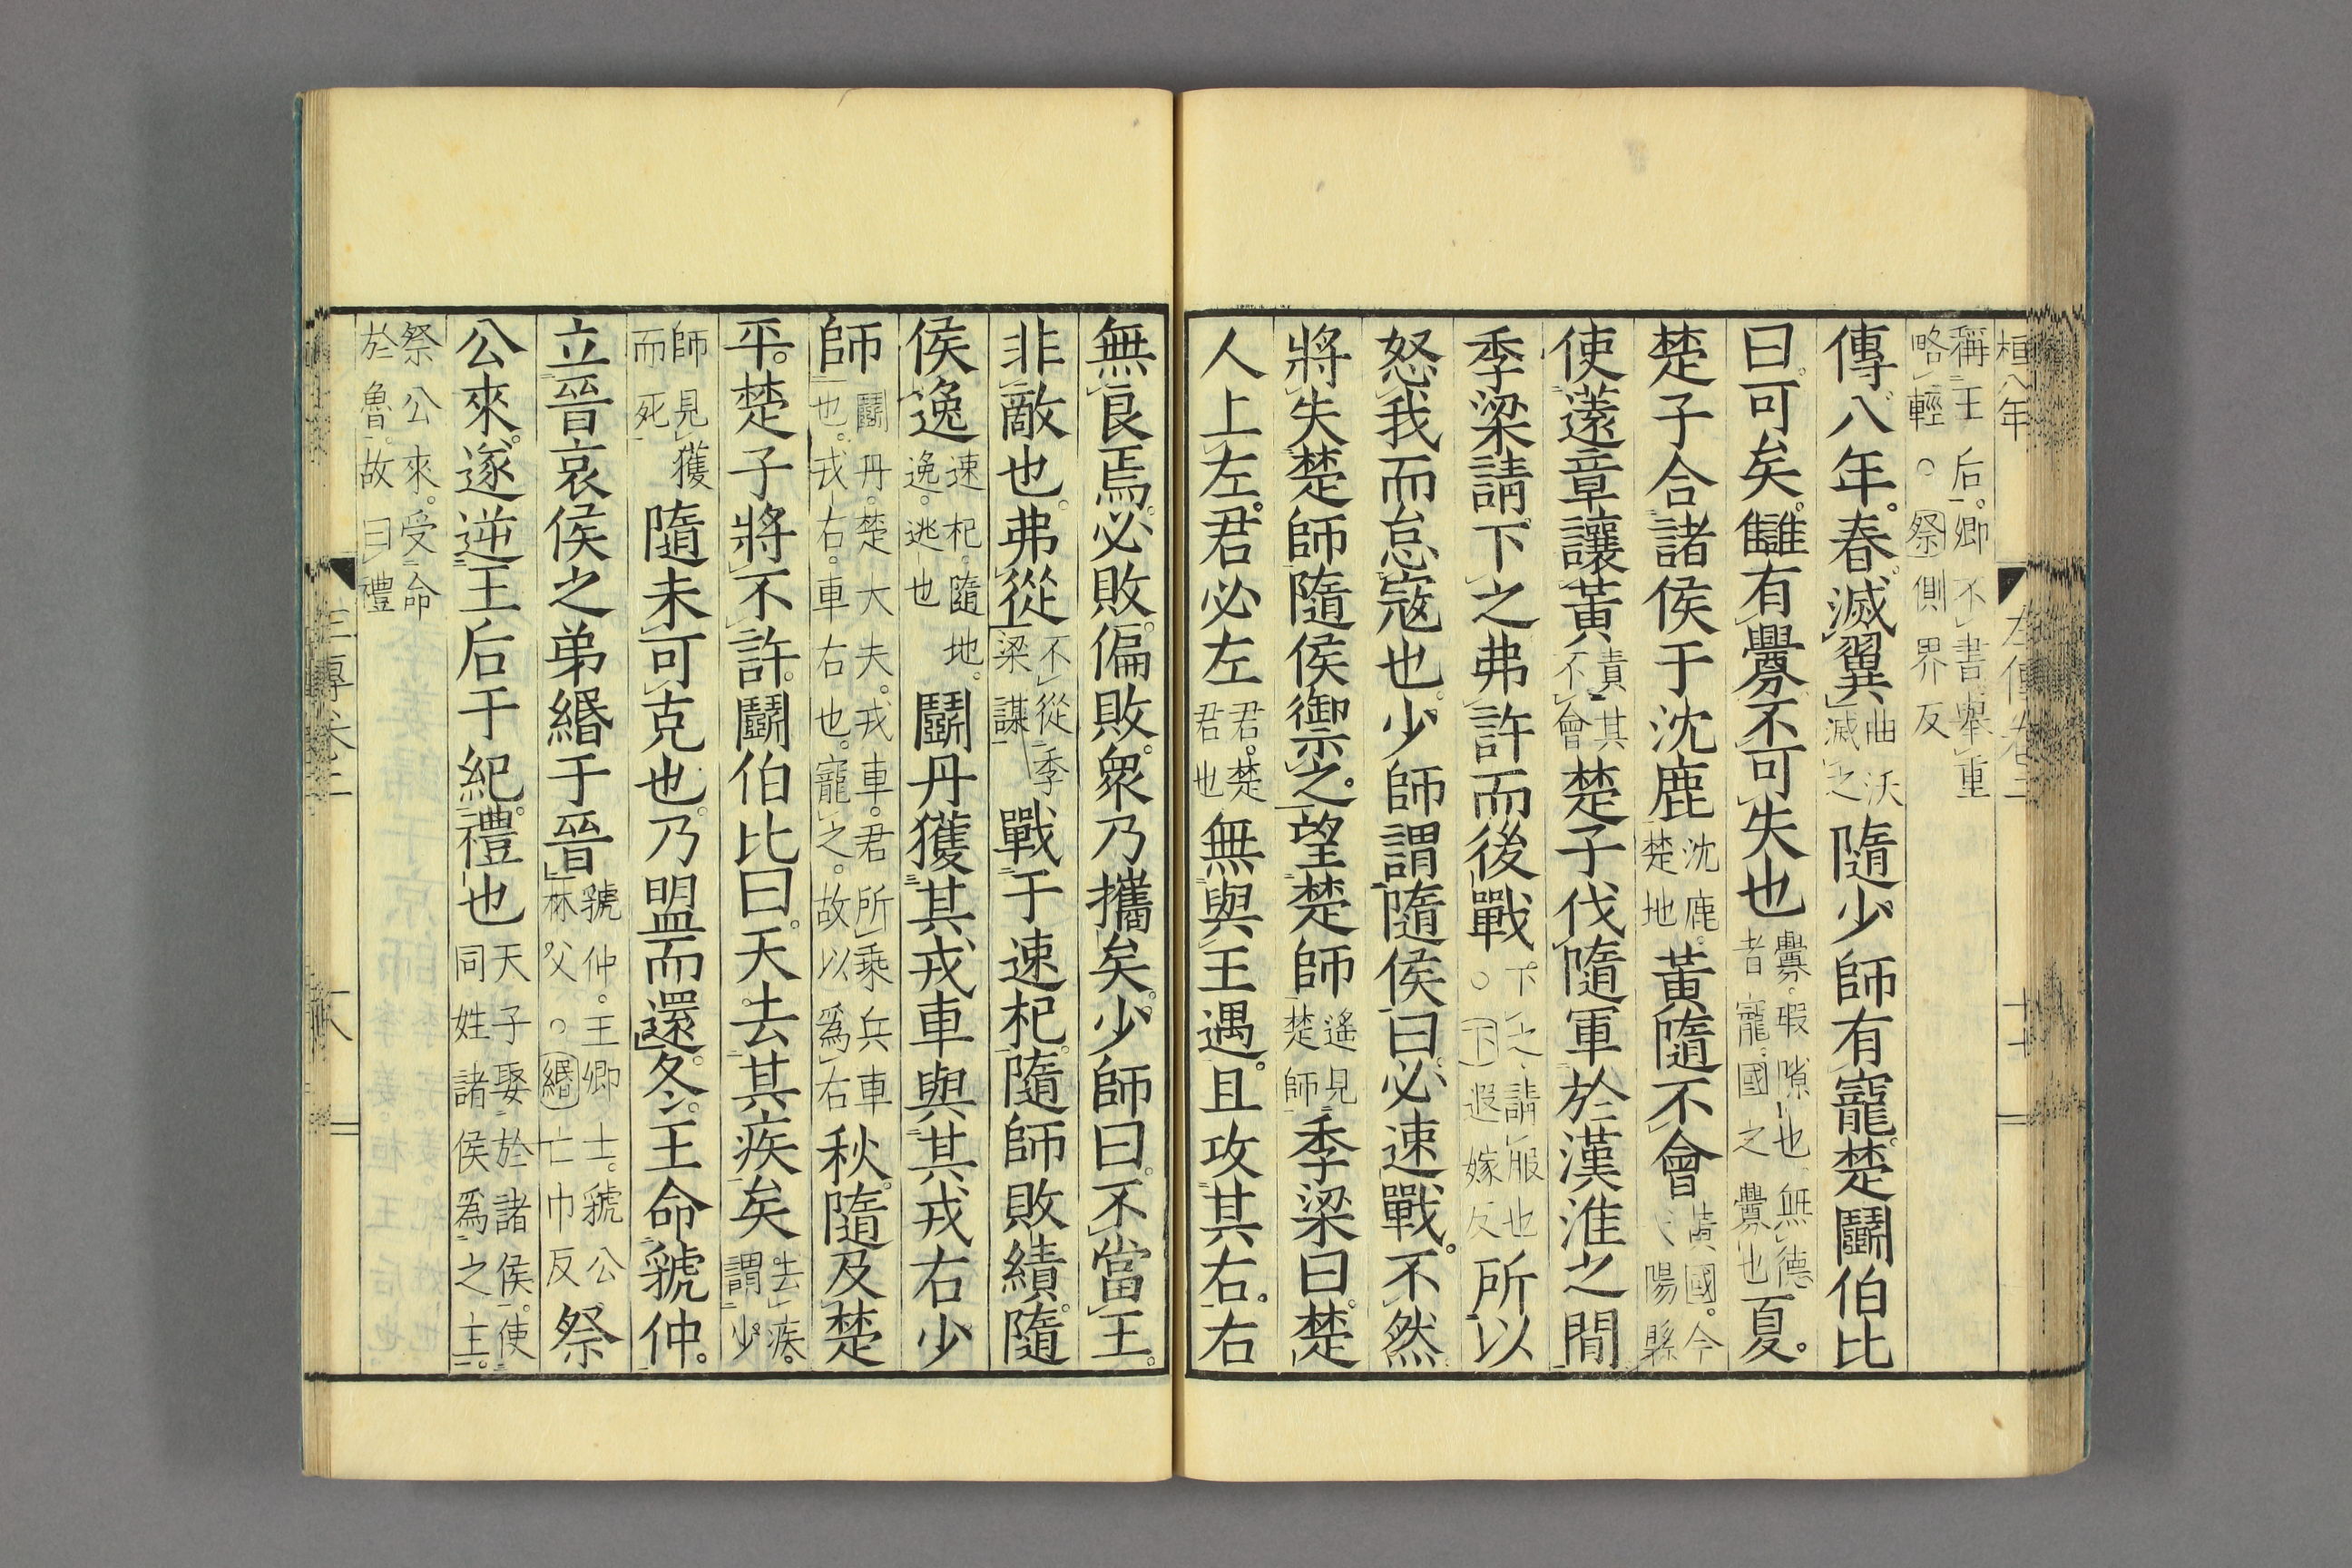 桓八年
稱王后。卿不書舉重
略輕○祭側界反
傳八年。春。滅翼曲沃滅之隨少師有寵。楚鬬伯比
曰。可矣。讎有釁。不可失也釁。瑕隙也。無德者寵。國之釁也夏。
楚子合諸侯于沈鹿沈鹿。楚地黃隨不會黃國。今陽縣
使薳章讓黃責其不會楚子伐隨軍於漢淮之間
季梁請下之弗許而後戰下之。請服也○下遐嫁反所以
怒我而怠寇也。少師謂隨侯曰。必速戰。不然
將失楚師隨侯禦之。望楚師遙見楚師季梁曰。楚
人上左。君必左君。楚君也無與王遇。且攻其右。右
無良焉。必敗。偏敗。衆乃攜矣。少師曰。不當王。
非敵也。弗從不從季梁謀戰于速杞。隨師敗績。隨
侯逸速杞。隨地。逸。逃也鬬丹獲其戎車與其戎右少
師鬬丹。楚大夫。戎車。君所乘兵車也。戎右。車右也。寵之。故以爲右秋。隨及楚
平。楚子將不許。鬬伯比曰。天去其疾矣去疾。謂少
師見獲而死隨未可克也。乃盟而還。冬。王命虢仲。
立晉哀侯之弟緡于晉虢仲。王卿士。虢公林父。○緡亡巾反祭
公來。遂逆王后于紀。禮也天子娶於諸侯。使同姓諸侯爲之主。
祭公來。受命於魯。故曰禮